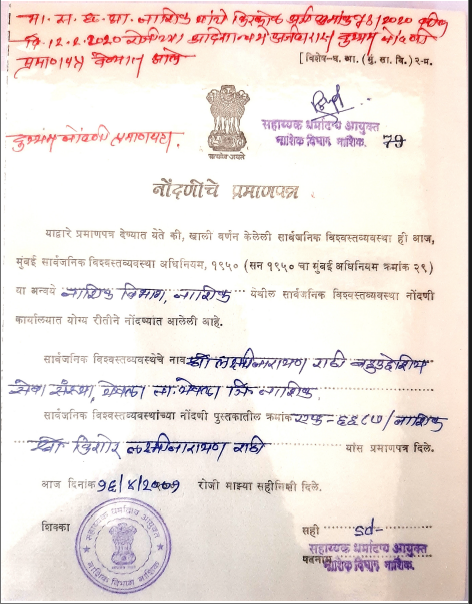 मा. स. ध. आ. नाशिक यांचे किरकोळ अर्ज क्रमांक 78/2020 वरील
दि. 12.2.2020 रोजीच्या आदेशान्वये अर्जदारास दुय्यम नोंदणी
प्रमाणपत्र देण्यात आले
[विशेष-ध. आ. (मुं. सा. वि.) २-म.
सहाय्यक धर्मादाय आयुक्त
नाशिक विभाग नाशिक. 79
दुय्यम नोंदणी प्रमाणपत्र.
सत्यमेव जयते
नोंदणीचे प्रमाणपत्र
याद्वारे प्रमाणपत्र देण्यात येते की, खाली वर्णन केलेली सार्वजनिक विश्वस्तव्यवस्था ही आज,
मुंबई सार्वजनिक विश्वस्तव्यवस्था अधिनियम, १९५० (सन १९५० चा मुंबई अधिनियम क्रमांक २९)
या अन्वये नाशिक विभाग, नाशिक येथील सार्वजनिक विश्वस्तव्यवस्था नोंदणी
कार्यालयात योग्य रीतीने नोंदण्यात आलेली आहे.
सार्वजनिक विश्वस्तव्यवस्थेचे नाव श्री लक्ष्मीनारायण राठी बहुउद्देशिय
सेवा संस्था, येवला ता. येवला जि. नाशिक.
सार्वजनिक विश्वस्तव्यवस्थांच्या नोंदणी पुस्तकातील क्रमांक एफ-६६८७/नाशिक
श्री. किशोर लक्ष्मीनारायण राठी यांस प्रमाणपत्र दिले.
आज दिनांक १६/४/२००१ रोजी माझ्या सहीनिशी दिले.
शिक्का
सही sd-
सहाय्यक धर्मादाय आयुक्त
पदनाम नाशिक विभाग नाशिक.
सहाय्यक धर्मादाय आयुक्त
नाशिक विभाग नाशिक